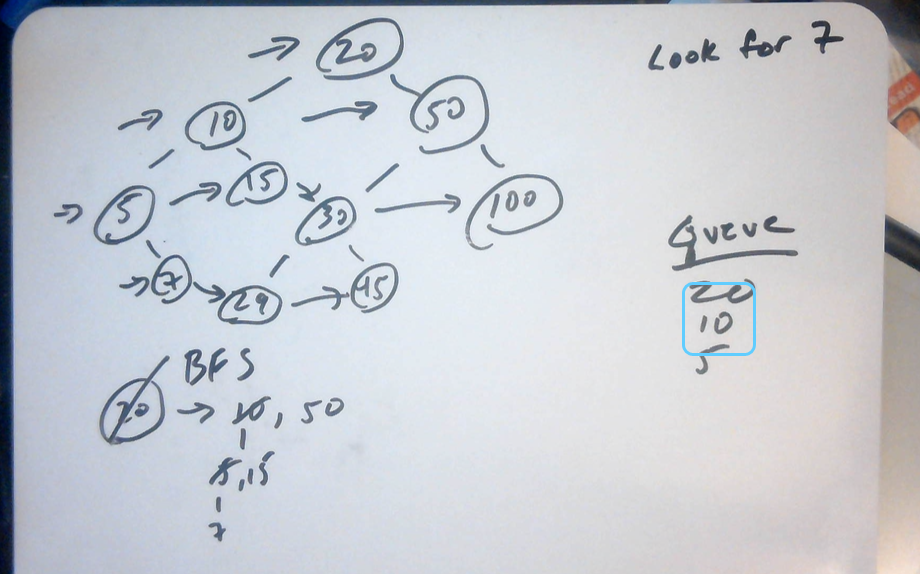 Look for 7
20
10
50
5
15
30
100
7
29
45
Queue
20
10
5
BFS
20 → 10, 50
5, 15
7